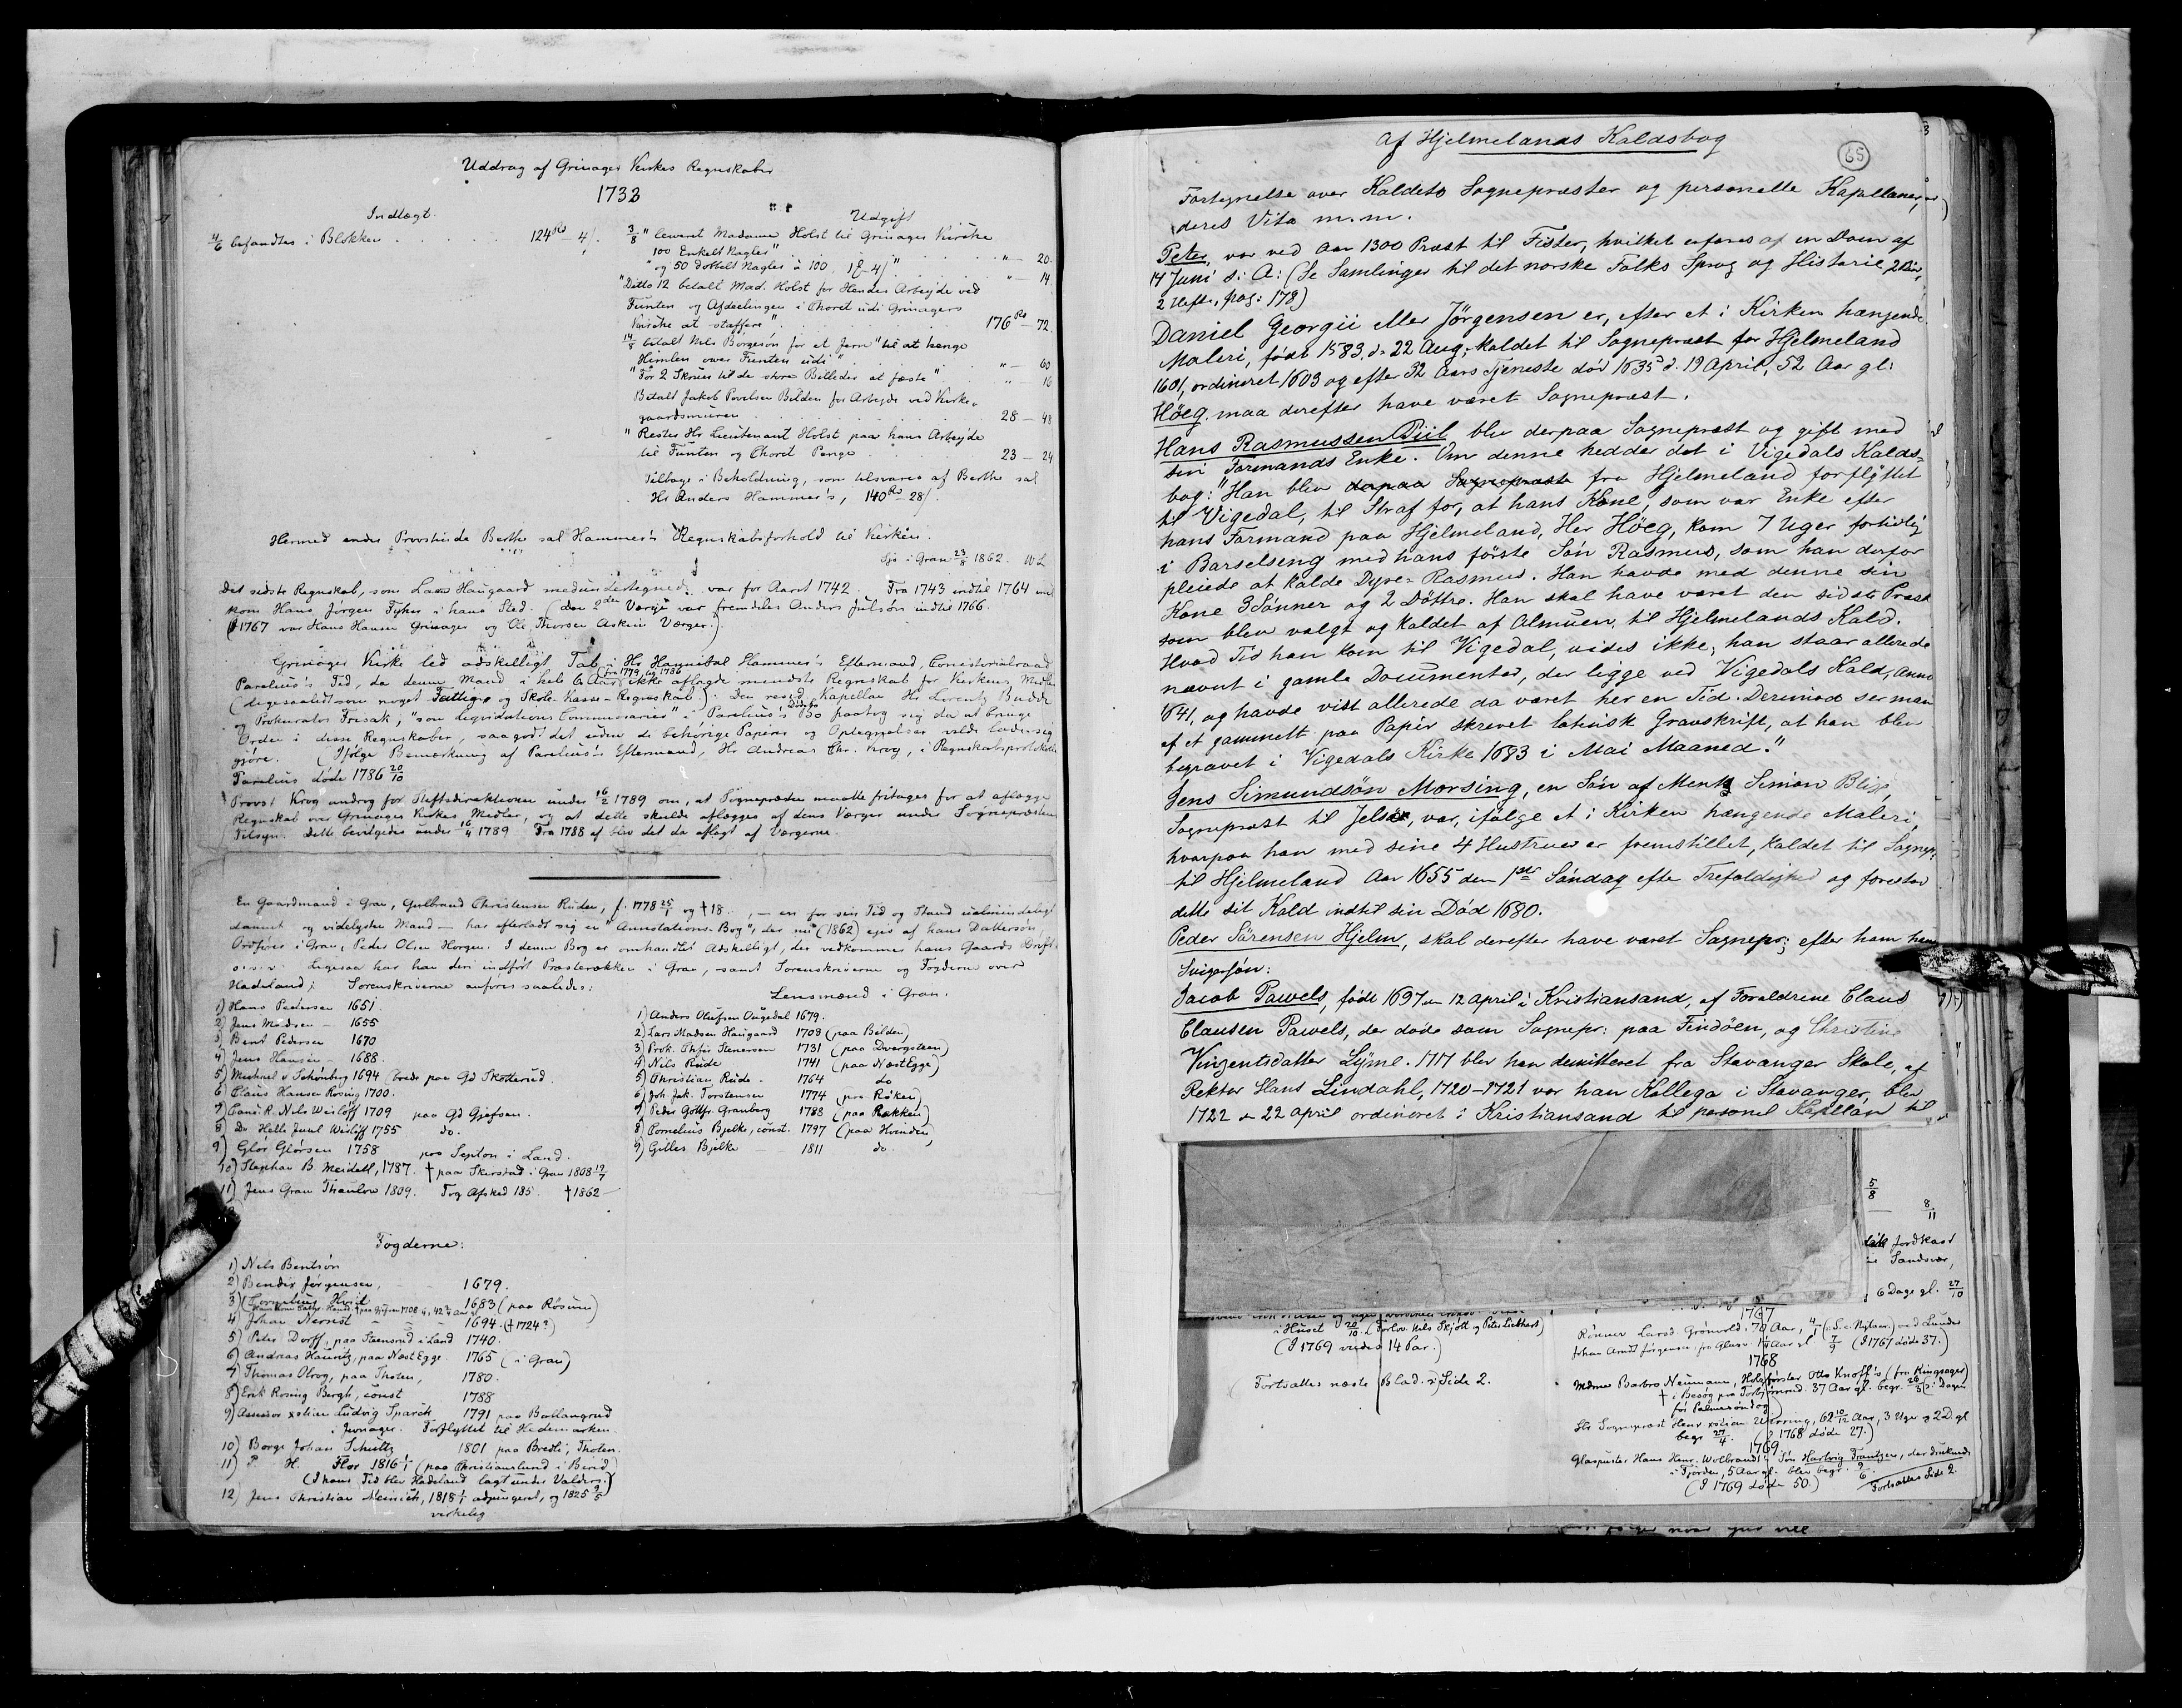 Uddrag af Grinager Kirkes Regnskaber
1733
Indtægt.
4/6 befandtes i Blokken . . . . . 124 Rd – 4 /.
Udgift
3/8 "leveret Madame Holst til Grinager Kirche
100 Enkelt Nagler" . . . " – 20.
"og 50 dobbelt Nagler à 100 " . . . " – 14.
"Ditto 12 betalt Mad. Holst for Hendes Arbejde ved
Funten og Afdeelingen i Choret udi Grinagers
Kirche at staffere" . . . 176 Rd – 72.
14/8 betalt Nels Børgesøn for et Jern "til at henge
Himlen over Funten udi" . . . " – 60
"For 2 Skruer til de store Billeder at feste" . . . " – 16
Betalt Jakob Povelsen Bilden for Arbejde ved Kirke-
gaardsmuren . . . 28 – 48
"Rester Hr Lieutenant Holst paa hans Arbejde
til Funten og Choret Penge . . . 23 – 24
Tilbage i Beholdning, som tilsvares af Berthe sal
Hr Anders Hammer's, 140 Rd – 28 /.
Hermed ender Provstinde Berthe sal Hammer's Regnskabsforhold til Kirken.
Sjo i Gran 23/8 1862. WL
Det sidste Regnskab, som Lars Haugaard medunderteigned. var for Aaret 1742. Fra 1743 indtil 1764 incl
kom Hans Jørgen Tyker i hans Sted. (den 2den Værge var fremdeles Anders Julsøn indtil 1766.
(I 1767 var Hans Hansen Grinager og Ole Thorsen Askim Værger.)
Grinager Kirke led adskilligt Tab i Hr Hannibal Hammer's Eftermand, Consistorialraad
fra 1779 til 1786
Parelius's Tid, da denne Mand i hele 6 Aar ikke aflagde mindste Regnskab for Kirkens Midler
(ligesaalidt som noget Fattig- og Skole-Kasse-Regnskab). Den resid. Kapellan Hr Lorentz Budde
og Prokurator Frisak, "som liqvidations Commissarier" i Parelius's Bo paatog sig da at bringe
Orden i disse Regnskaber, saagodt det uden de behørige Papirer og Optegnelser vilde lade sig
gjøre. (Ifølge Bemærkning af Parelius's Eftermand, Hr Andreas Chr. Krog, i Regnskabsprotokollen
Parelius døde 1786 20/10
Provst Krog androg for Stiftsdirektionen under 16/2 1789 om, at Sognepræsten maatte fritages for at aflægge
Regnskab over Grinager Kirkes Midler, og at dette skulde aflægges af dens Værger under Sognepræstens
Tilsyn. Dette bevilgedes under 16/4 1789 Fra 1788 af blev det da aflagt af Værgerne.
En Gaardmand i Gran, Gulbrand Christensen Ruden, f. 1778 25/1 og † 18 . , – en for sin Tid og Stand ualmindeligt
dannet og videlysten Mand – har efterladt sig en "Annotations-Bog", der nu (1862) ejes af hans Dattersøn,
Ordfører i Gran, Peder Olsen Horgen. I denne Bog er omhandlet Adskilligt, der vedkommer hans Gaards Drift
o.s.v. Ligesaa har han deri indført Præsterækken i Gran, samt Sorenskriverne og Fogderne over
Hadeland; Sorenskriverne anføres saaledes:
1) Hans Pedersen 1651.
2) Jens Madsen – 1655
3) Bent Pedersen 1670
4) Jens Hansen – 1688.
5) Michael v Schönberg 1694 (boede paa Gd Skotterud.
6) Claus Hansen Rosing 1700.
7) Canc. R. Nels Weisløff 1709 paa Gd Gjefsen.
8) Dr Helle Juul Wisløff 1755 do.
9) Glør Glørsen 1758 paa Septon i Land.
10) Stephan B Meidell, 1787. † paa Skirstad i Gran 1808 19/7
11) Jens Gran Thaulow 1809. Tog Afsked 185 . † 1862 –
Lensmænd i Gran.
1) Anders Olufsen Ougedal 1679.
2) Lars Madsen Haugaard 1708 (paa Bilden)
3) Prok. Chfer Stenersen 1731 (paa Dvergsteen)
4) Nils Rude 1741 (paa NæstEgge)
5) Christian Rude . 1764 do
6) Joh. Jak. Torstensen 1774 (paa Røken)
7) Peder Gottfr. Granberg 1788 (paa Rækken)
8) Cornelius Bjelke, const. 1797 (paa Hvinden)
9) Gilles Bjelke 1811 do.
Fogderne:
1) Nels Bentsøn
2) Bendix Jørgensen, 1679.
3) Cornelius Hvid 1683 (paa Røsum)
4) Johan Nernst 1694. († 1724?)
5) Peter Dorff, paa Steensrud i Land 1740.
6) Andreas Hauntz, paa Næst Egge. 1765 (i Gran)
7) Thomas Olrog, paa Thoten, 1780.
8) Erik Rosing Bergh, const 1788
9) Assessor xstian Ludvig Sparch 1791 paa Ballangrud
i Jevnager. Forflyttet til Hedemarken.
10) Børge Johan Schultz 1801 paa Bredli, Thoten.
11) P. H. Flor 1816 1/1 (paa Christianslund i Birid)
(I hans Tid blev Hadeland lagt under Valders.)
12) Jens Christian Meinich, 1818 1/1 adjungeret, og 1825 9/5
virkelig
Af Hjelmelands Kaldsbog
65
Fortegnelse over Kaldets Sognepræster og personelle Kapellaner,
deres Vita m.m.
Peter, var ved Aar 1300 Præst til Fister, hvilket erfares af en Dom af
14 Juni s: A: (Se Samlinger til det norske Folks Sprog og Historie, 2 Bind,
2 Hefte, pag: 178)
Daniel Georgii eller Jörgensen er, efter et i Kirken hængende
Maleri, født 1583. d. 22 Aug; kaldet til Sognepræst for Hjelmeland
1601, ordineret 1603 og efter 32 Aars Tjeneste död 1635 d. 19 April, 52 Aar gl:
Höeg maa derefter have været Sognepræst.
Hans Rasmussen Piil blev derpaa Sognepræst og gift med
sin Formands Enke. Om denne hedder det i Vigedals Kalds=
bog: "Han blev derpaa Sognepræst fra Hjelmeland forflyttet
til Vigedal, til Straf for, at hans Kone, som var Enke efter
hans Formand paa Hjelmeland, Her Höeg, kom 7 Uger fortidlig
i Barselseng med hans förste Sön Rasmus, som han derfor
pleiede at kalde Dyre=Rasmus. Han havde med denne sin
Kone 3 Sönner og 2 Döttre. Han skal have været den sidste Præst
som blev valgt og kaldet af Almuen, til Hjelmelands Kald.
Hvad Tid han kom til Vigedal, vides ikke, han staar allerede
nævnt i gamle Documenter, der ligge ved Vigedals Kald, Anno
1641, og havde vist allerede da været her en Tid. Derimod ser man
af et gammelt paa Papir skrevet latinsk Gravskrift, at han blev
begravet i Vigedals Kirke 1683 i Mai Maaned."
Jens Simundsön Morsing, en Sön af Simon Blix,
Sognepræst til Jelsø, var, ifölge et i Kirken hængende Maleri,
hvorpaa han med sine 4 Hustruer er fremstillet, kaldet til Sognep.
til Hjelmeland Aar 1655 den 1ste Söndag efter Trefoldighed og forestod
dette sit Kald indtil sin Död 1680.
Peder Sörensen Hjelm, skal derefter have været Sognepr; efter ham hans
Svigersön:
Jacob Pawels, födt 1697 den 12 April i Kristiansand, af Forældrene Claus
Clausen Pawels, der döde som Sognepr: paa Findöen, og Christine
Vinzentsdatter Lyme. 1717 blev han demitteret fra Stavanger Skole, af
Rektor Hans Lindahl, 1720–1721 var han Kollega i Stavanger, blev
1722 den 22 April ordineret i Kristiansand til personel Kapellan til
5/8
8/11
fordkast
Sandsvær,
6 Dage gl. 27/10
i Huset 20/10. (Forlov. Nils Skjött og Peter Liebhart)
(I 1769 viedes 14 Par.)
Fortsættes næste Blad. Side 2.
1767
Rönner Larsd. Grönvold. 70 Aar,
Johan Arndt Jörgensen. fra Glasv. 1¼ Aar gl 7/9 (I 1767 döde 37.)
1768
Mdme Barbra Neumann, Holzförster Otto Knoff's (fra Ringsager)
† i Besög paa . 37 Aar gl. begr. 26/3
för Palmesöndag
Hr Sognepræst Henr. xstian , 62 10/12 Aar, 3 Uger og 2 D. gl
begr 27/4. (I 1768 döde 27.)
1769
Glaspuster Hans Henr. Wolbrandt's Sön Hartvig Frantzen, der druknede
i Fjorden, 5 Aar gl. blev begr. 9/6.
(I 1769 döde 50.)
Fortsættes Side 2.